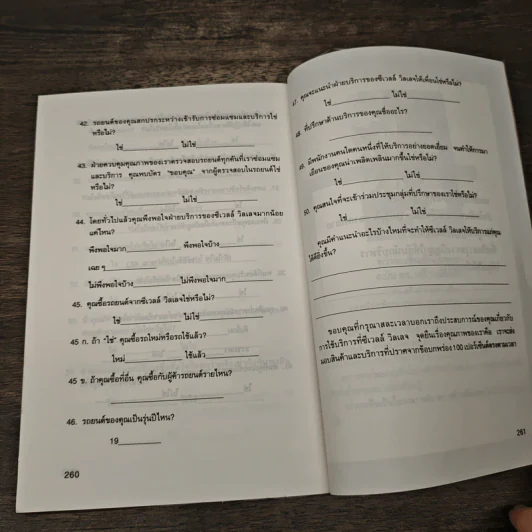 42. รถยนต์ของคุณสกปรกระหว่างเข้ารับการซ่อมแซมและบริการใช่
หรือไม่?
ใช่__________ ไม่ใช่__________
43. ฝ่ายควบคุมคุณภาพของเราตรวจสอบรถยนต์ทุกคันที่เราซ่อมแซม
และบริการ คุณพบบัตร "ขอบคุณ" จากผู้ตรวจสอบในรถยนต์ใช่
หรือไม่?
ใช่__________ ไม่ใช่__________
44. โดยทั่วไปแล้วคุณพึงพอใจฝ่ายบริการของซีเวลล์ วิลเลจมากน้อย
แค่ไหน?
พึงพอใจมาก__________ พึงพอใจบ้าง__________
เฉย ๆ__________
ไม่พึงพอใจบ้าง__________ ไม่พึงพอใจมาก__________
45. คุณซื้อรถยนต์จากซีเวลล์ วิลเลจใช่หรือไม่?
ใช่__________ ไม่ใช่__________
45 ก. ถ้า "ใช่" คุณซื้อรถใหม่หรือรถใช้แล้ว?
ใหม่__________ ใช้แล้ว__________
45 ข. ถ้าคุณซื้อที่อื่น คุณซื้อกับผู้ค้ารถยนต์รายไหน?
____________________
46. รถยนต์ของคุณเป็นรุ่นปีไหน?
19________
260
47. คุณจะแนะนำฝ่ายบริการของซีเวลล์ วิลเลจให้เพื่อนใช่หรือไม่?
ใช่__________ ไม่ใช่__________
48. ที่ปรึกษาด้านบริการของคุณชื่ออะไร?
____________________
49. มีพนักงานคนใดคนหนึ่งที่ให้บริการอย่างยอดเยี่ยม จนทำให้การมา
เยือนของคุณน่าเพลิดเพลินมากขึ้นใช่หรือไม่?
ใช่__________ ไม่ใช่__________
50. คุณสนใจที่จะเข้าร่วมประชุมกลุ่มที่ปรึกษาของเราใช่หรือไม่?
ใช่__________ ไม่ใช่__________
คุณมีคำแนะนำอะไรบ้างไหมที่จะทำให้ซีเวลล์ วิลเลจให้บริการแก่คุณ
ได้ดียิ่งขึ้น?
____________________
____________________
____________________
ขอบคุณที่กรุณาสละเวลาบอกเราถึงประสบการณ์ของคุณเกี่ยวกับ
การใช้บริการที่ซีเวลล์ วิลเลจ จุดยืนเรื่องคุณภาพของเราคือ เราจะส่ง
มอบสินค้าและบริการที่ปราศจากข้อบกพร่อง 100 เปอร์เซ็นต์ตรงตามเวลา
261